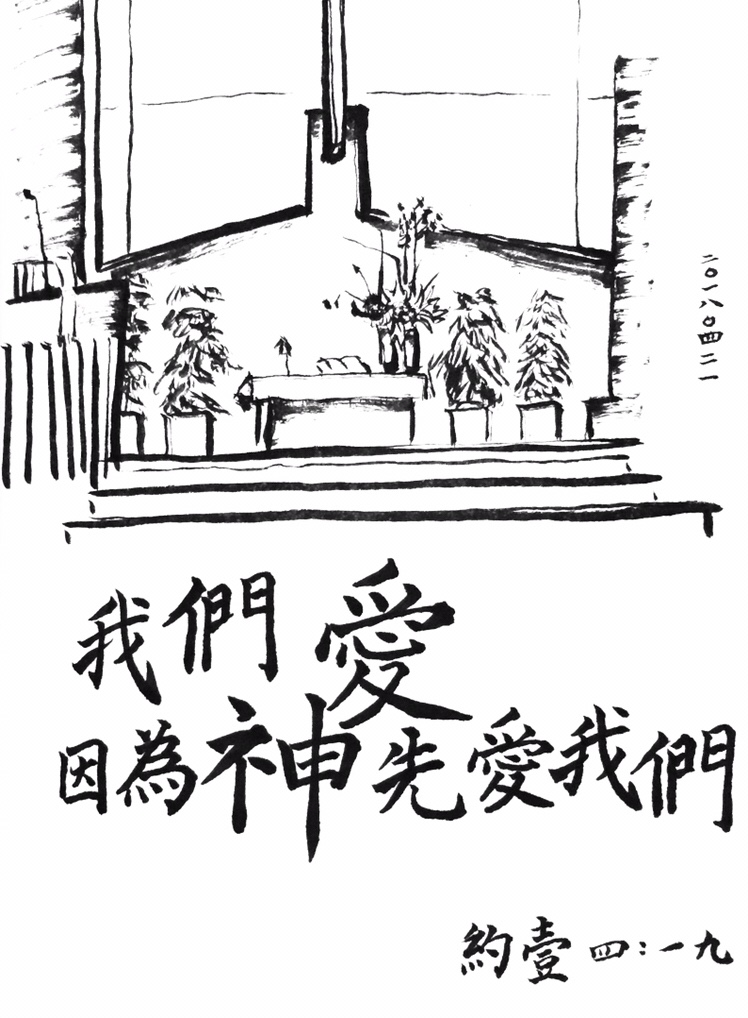 二〇一八〇四二一
我們愛
因為神先愛我們
約壹四:一九